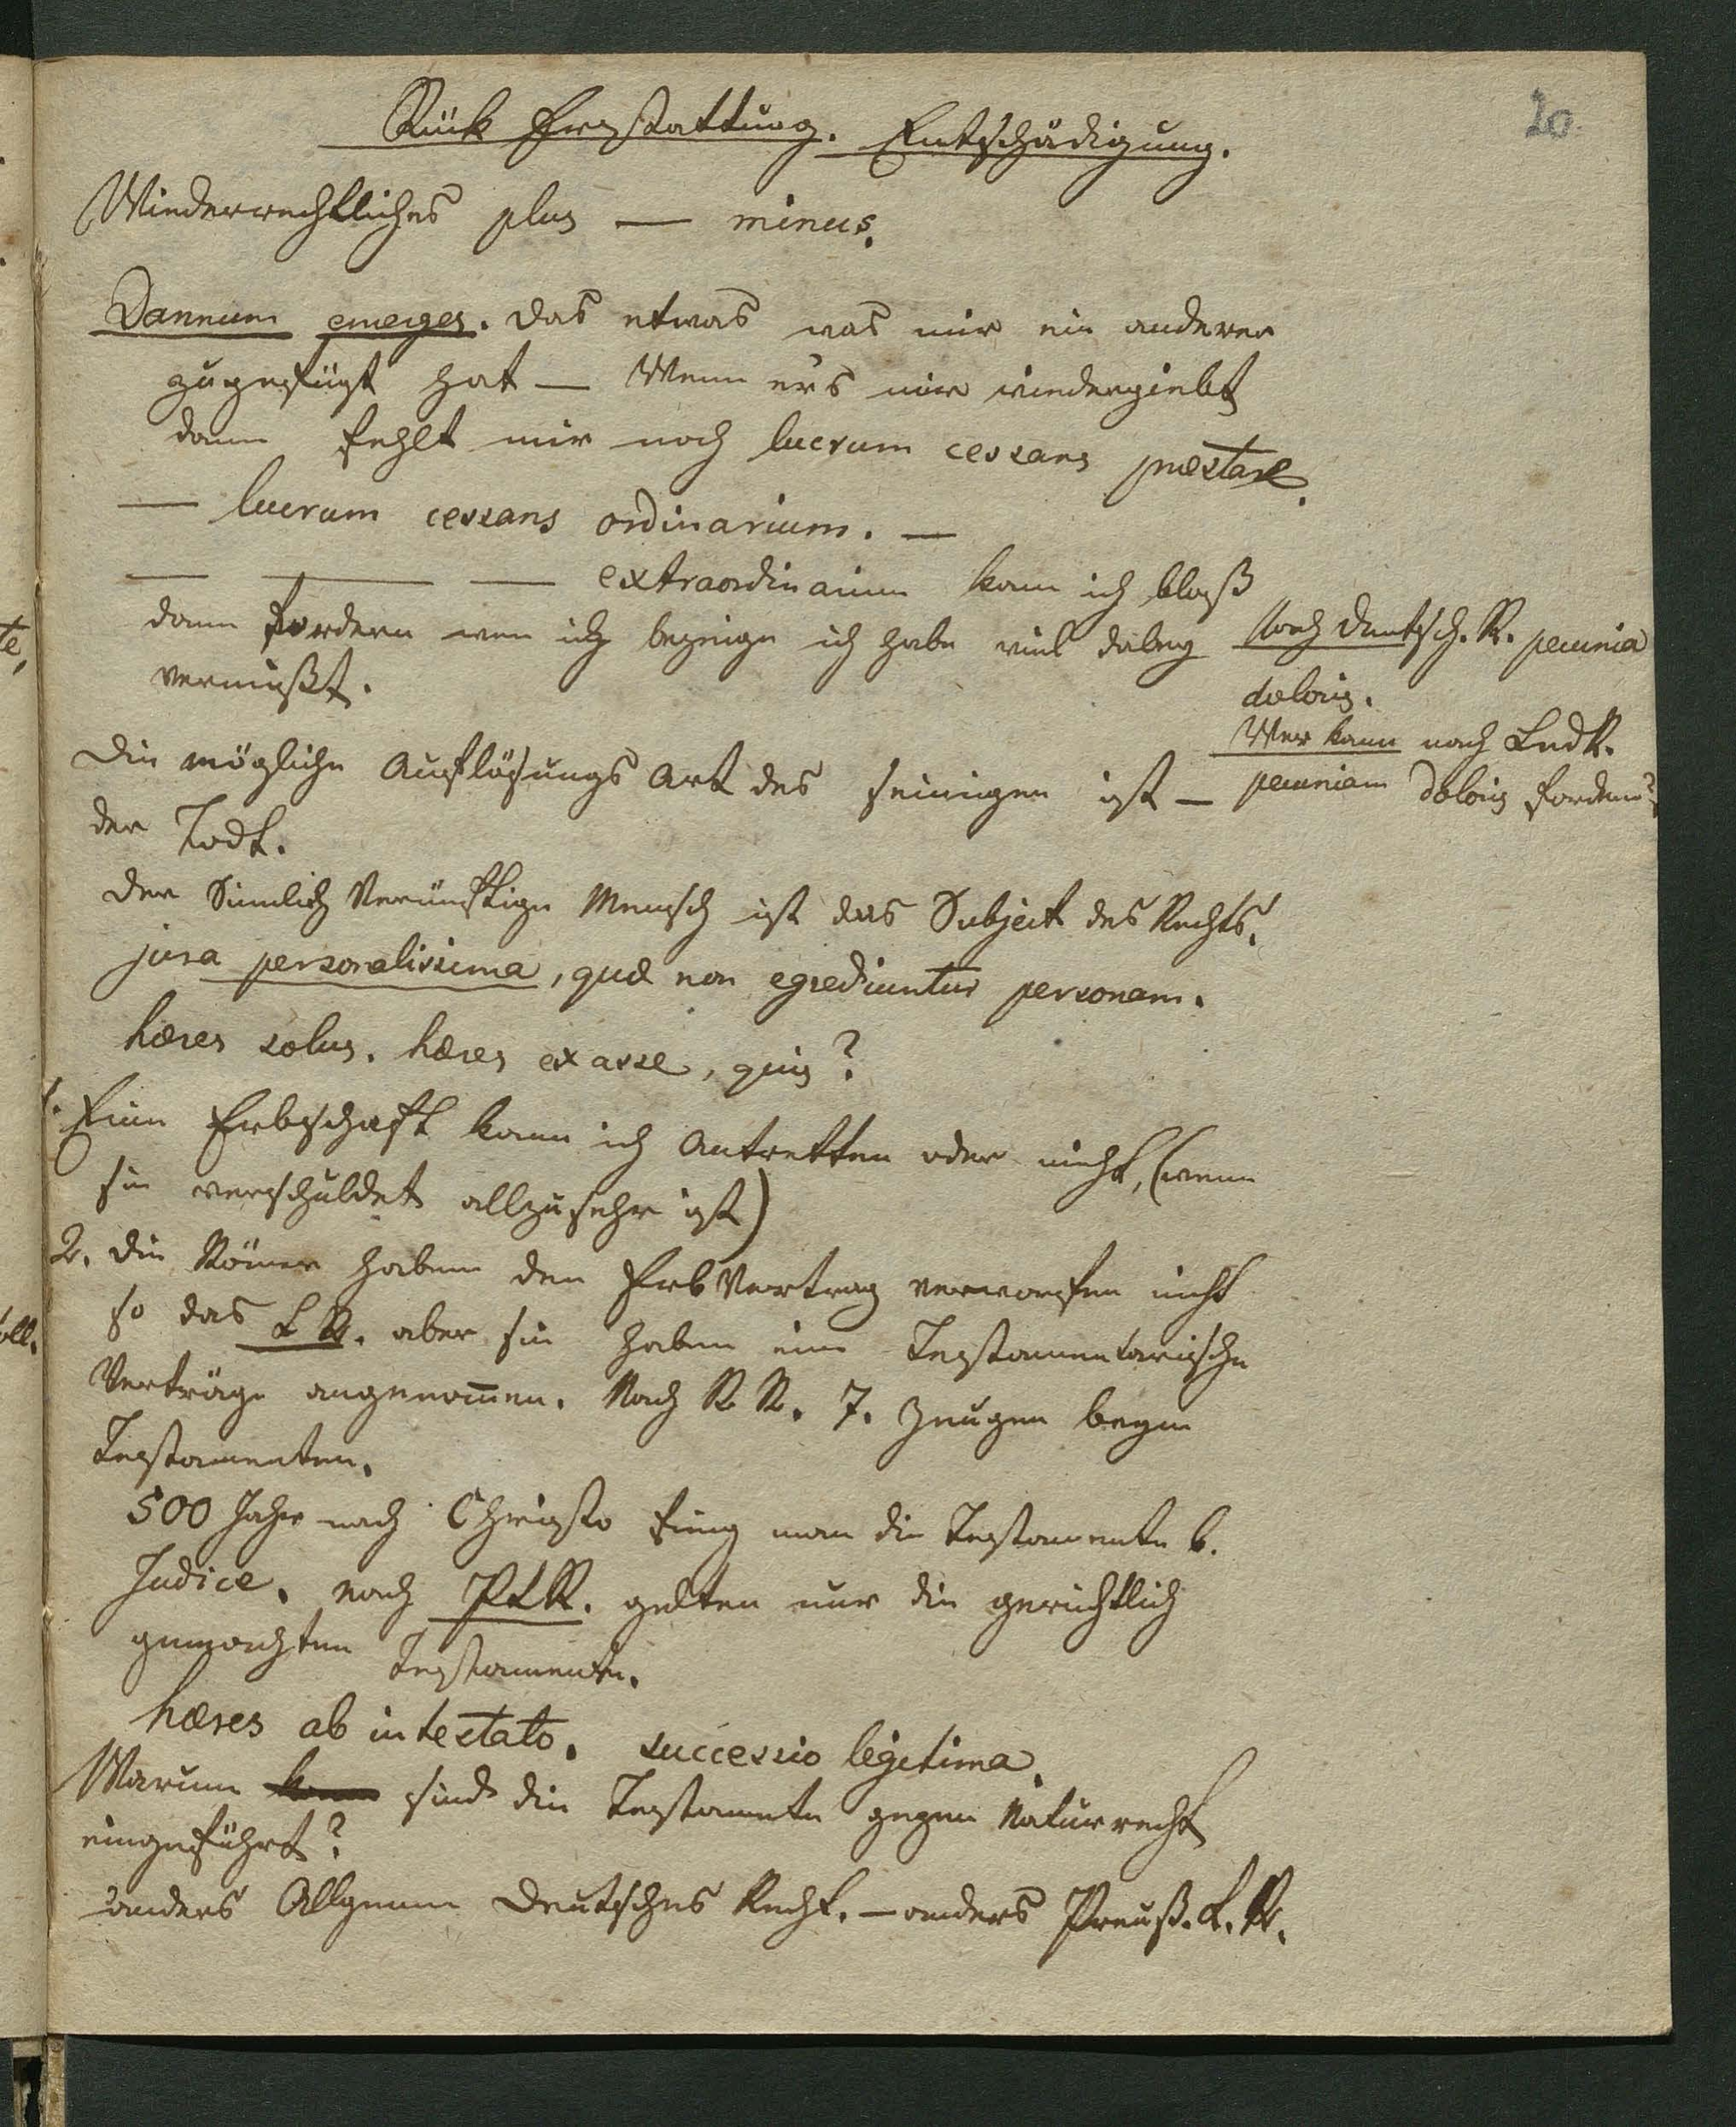 20.
Rük Erstattung. Entschädigung.
Wiederrechtliches plus — minus.
Damnum emerges. Das etwas was mir ein anderer
zugefügt hat — Wenn ers mir wiedergiebt
dann fehlt mir noch lucrum cessans præstare.
— lucrum cessans ordinarium. —
— — — extraordinarium kann ich bloß
dann fordern wen ich bezeige ich habe viel dabey
vermißt.
Nach Deutsch. R. pecunia
doloris.
Wer kann nach LndR.
pecuniam doloris fordern?
Die mögliche Auflösungs Art des seinigen ist —
der Todt.
Der Sinnlich Vernünftige Mensch ist das Subject des Rechts.
jura personalissima, quæ non egrediuntur personam.
hæres solus. hæres ex asse, quis?
1. Eine Erbschaft kann ich Antretten oder nicht, (wenn
sie verschuldet allzusehr ist)
2. Die Römer haben den Erb Vertrag verworfen nicht
so das L R. aber sie haben eine Testamentarische
Verträge angenom̄en. Nach R R. 7. Zeugen beym
Testamenten.
500 Jahr nach Christo fieng man die Testamente b.
Judice. nach PLR. gelten nur die gerichtlich
gemachten Testamente.
hæres ab intestato. successio legitima.
Warum sind die Testamente gegen Naturrecht
eingeführt?
anders Allgemein Deutsches Recht. — anders Preuß. L. R.